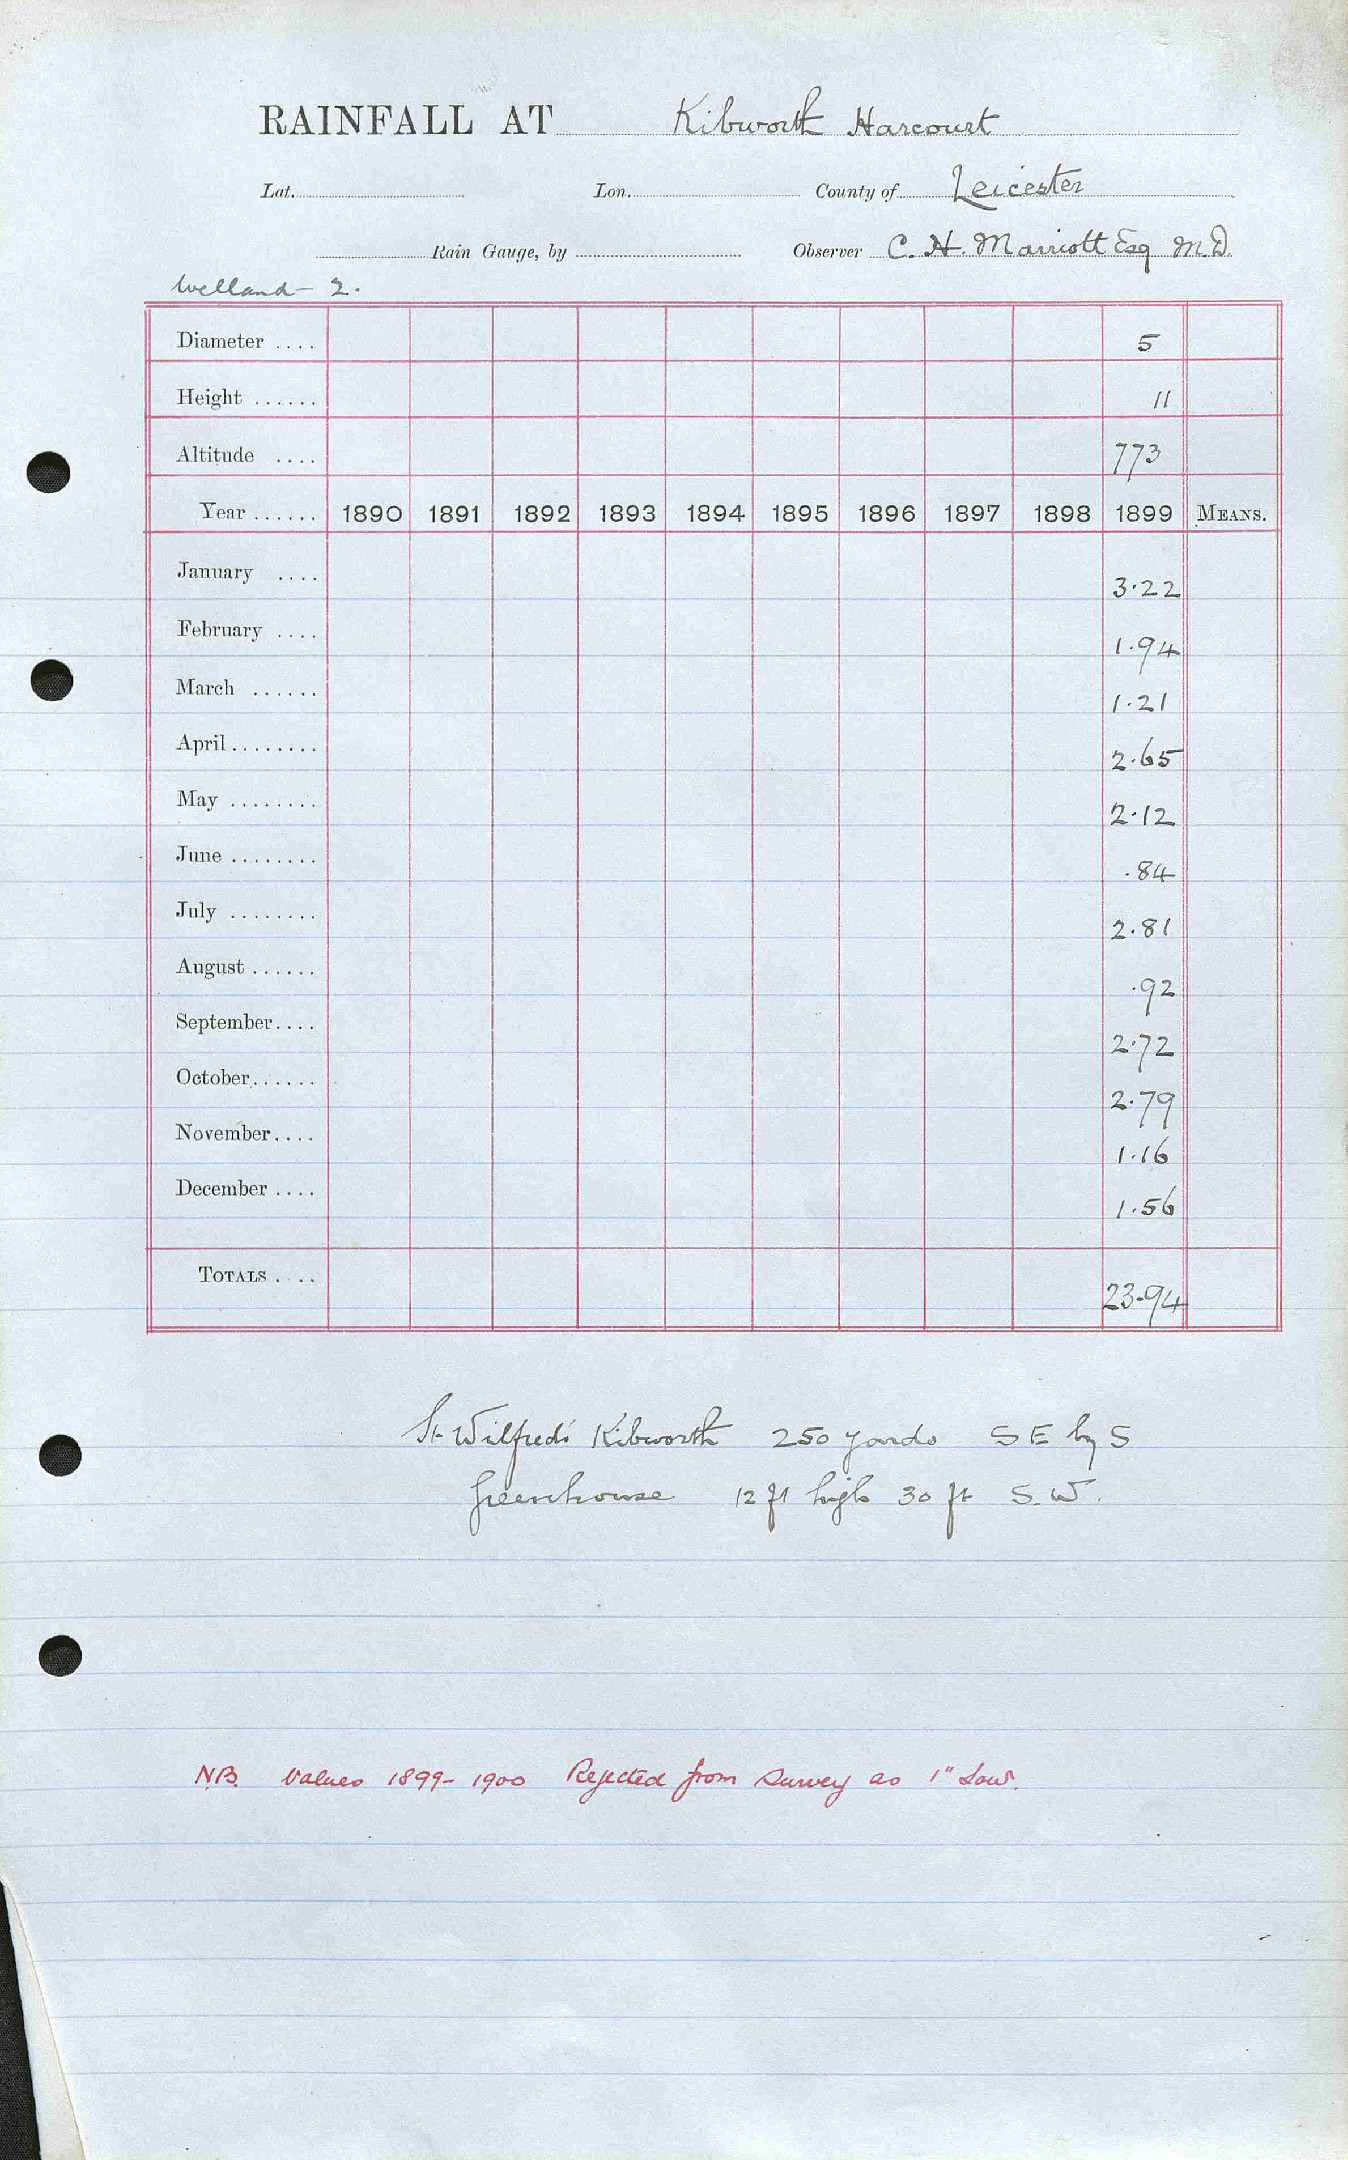 RAINFALL AT Kibworth Harcourt
Lat. Lon. County of Leicester
Rain Gauge, by Observer C. H. Marriott Esq M.D.
Welland - 2.
Diameter .... 5
Height ...... 11
Altitude .... 773
Year ...... 1890 1891 1892 1893 1894 1895 1896 1897 1898 1899 MEANS.
January .... 3.22
February .... 1.94
March ...... 1.21
April ........ 2.65
May ........ 2.12
June ........ .84
July ........ 2.81
August ...... .92
September .... 2.72
October ...... 2.79
November .... 1.16
December .... 1.56
TOTALS .... 23.94
St Wilfred's Kibworth 250 yards S E by S
Greenhouse 12 ft high 30 ft S.W.
N.B. Values 1899-1900 Rejected from Survey as 1" Low.